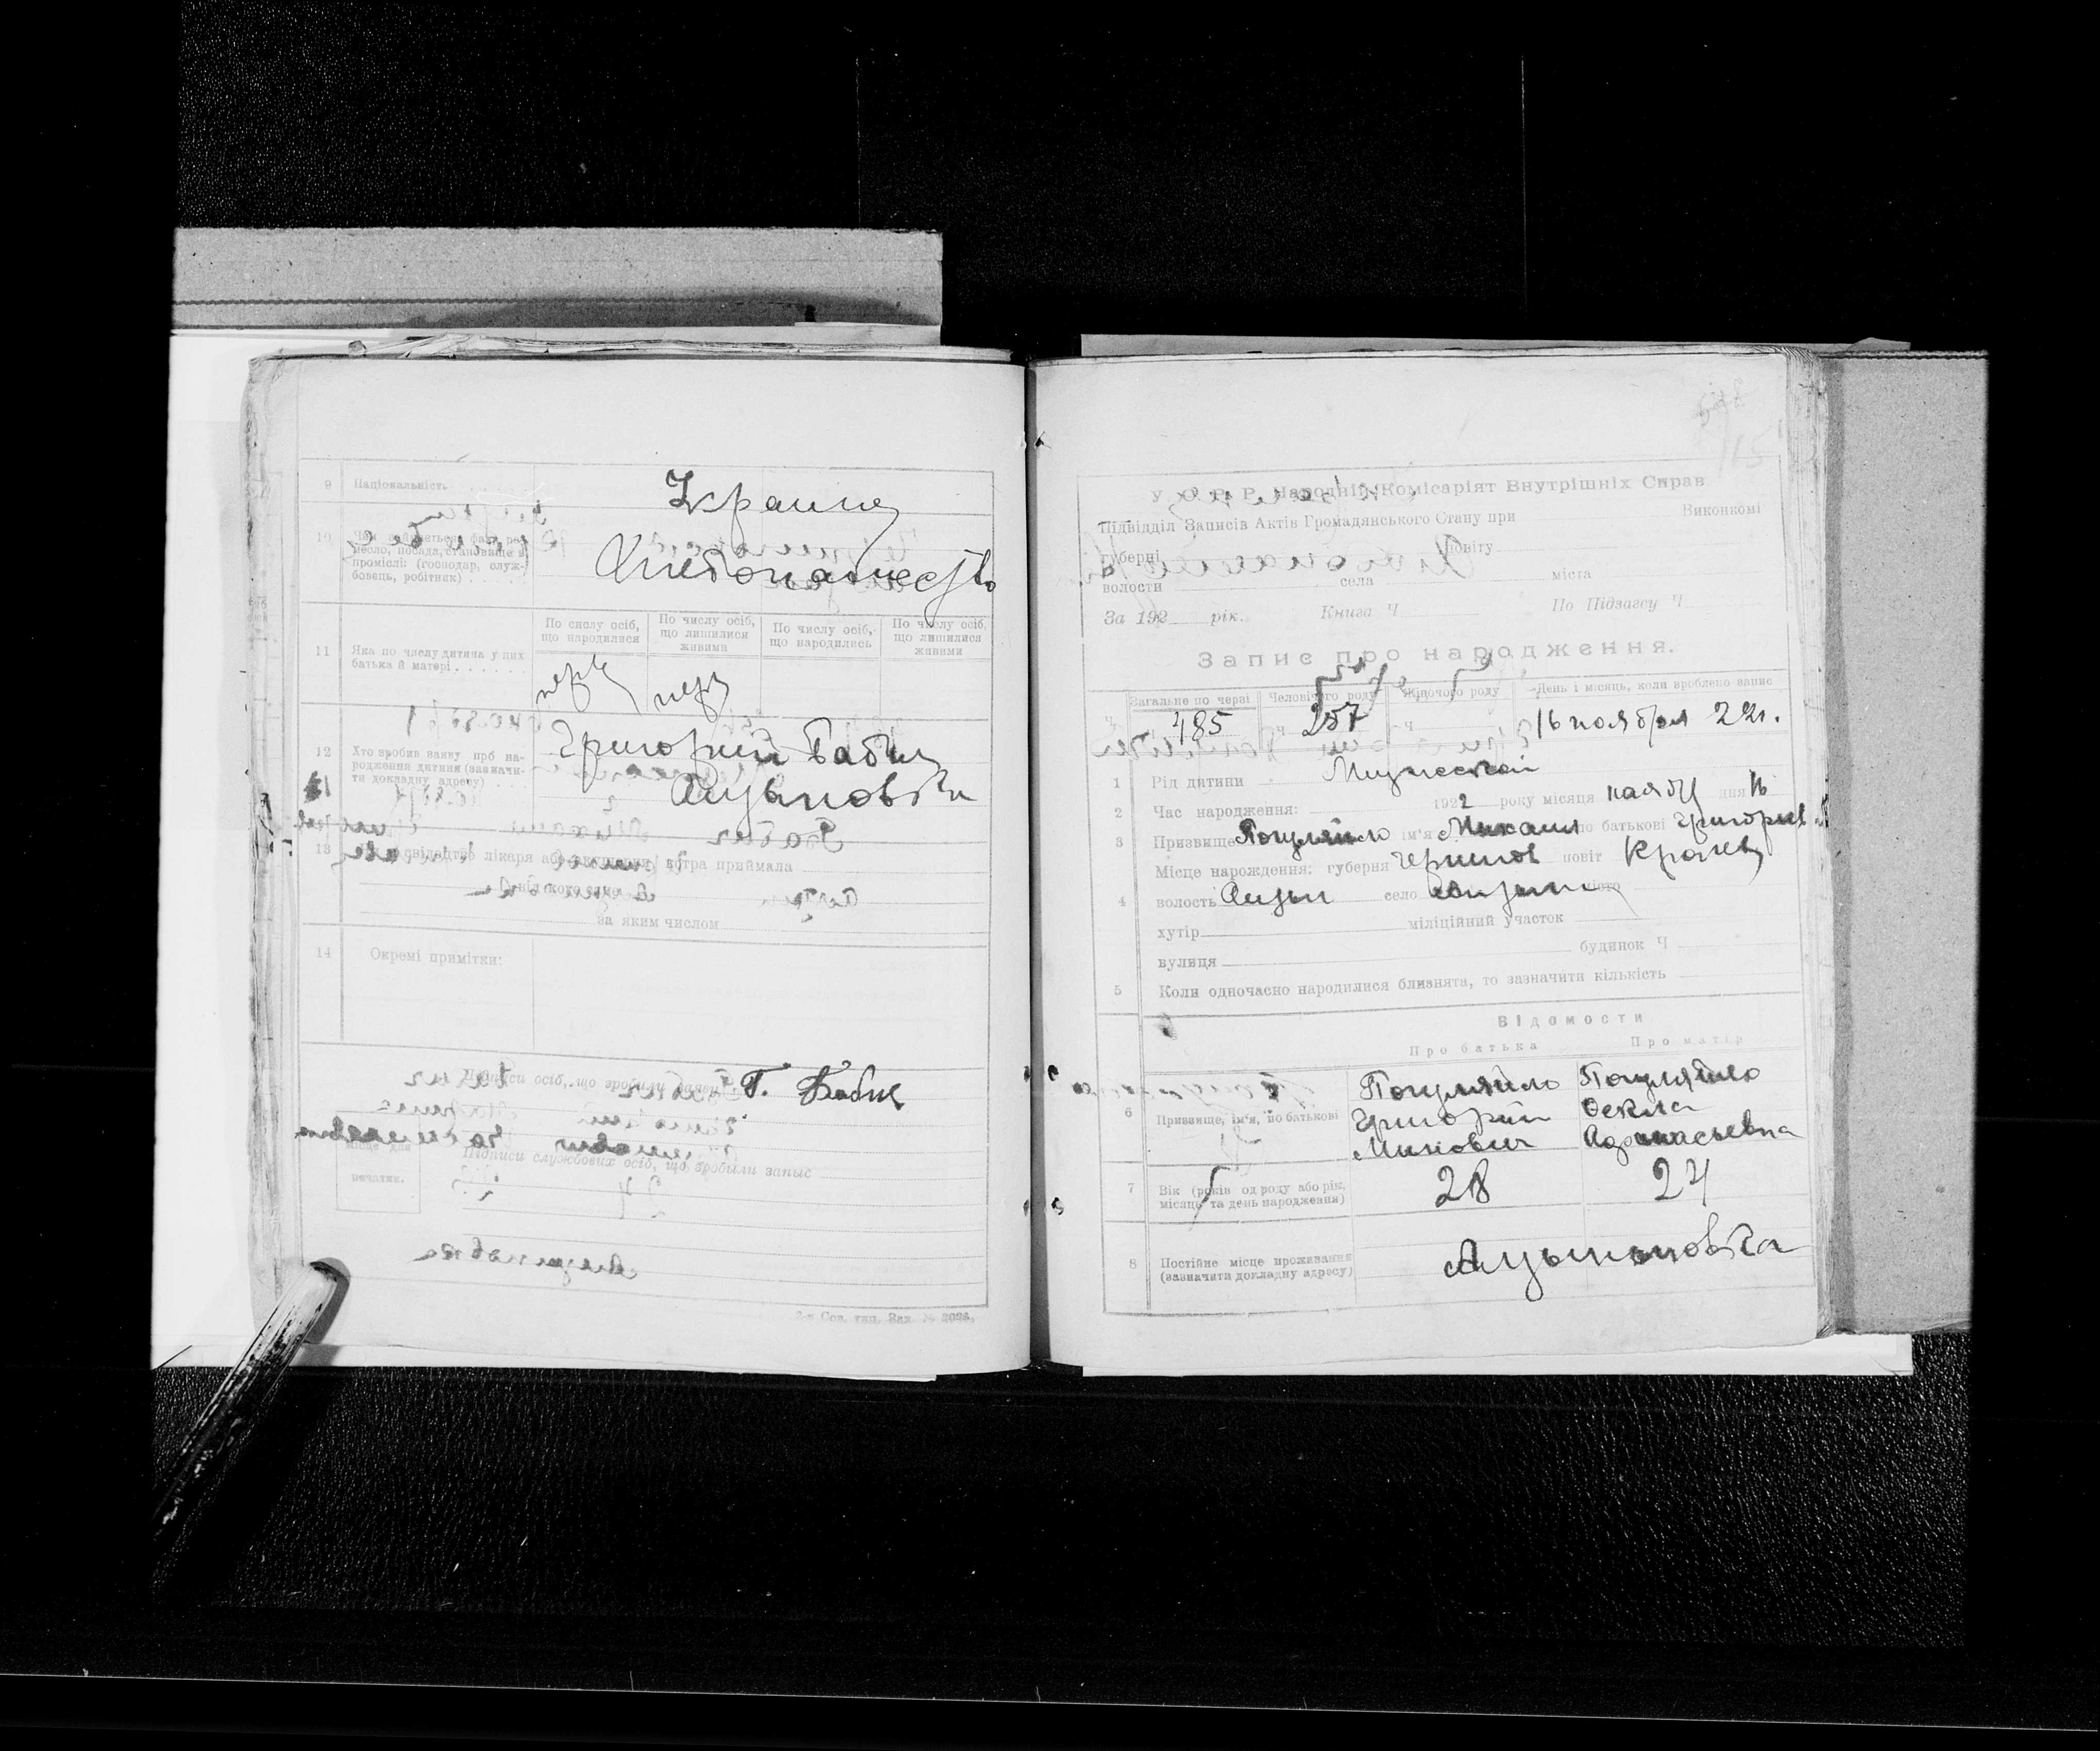 9 Національність
Украине
10 Чим займається батько: ремесло, посада, становище в
промислі: (господар, служ-
бовець, робітник)
Хлебопашество
11 Яка по числу дитина у цих
батька й матері
По числу осіб,
що народилися
По числу осіб,
що лишилися
живими
По числу осіб,
що народились
По числу осіб,
що лишилися
живими
перв перв
12 Хто зробив заяву про на-
родження дитини (зазначи-
ти докладну адресу)
Григорий Бабич
13
за яким числом
14 Окремі примітки:
Підписи осіб, що зробили заяву
Г. Бабич
Підписи службових осіб, що зробили запис
Місце для
печатки.
115
У. С. Р. Р. Народній Комісаріят Внутрішніх Справ
Підвідділ Записів Актів Громадянського Стану при Виконкомі
губерні повіту
волости села міста
За 192 рік. Книга Ч По Підзагсу Ч
Запис про народження.
Загальне по черзі Человічого роду Жіночого роду День і місяць, коли зроблено запис
Ч 485 Ч 257 Ч 16 ноября 22г.
1 Рід дитини Мужеский
2 Час народження: 1922 року місяця ноября дня 16
3 Призвище Погуляйло ім'я Михаил по батькові Григорьев
Місце народження: губерня Чернигов повіт Кролев
4 волость село місто
хутір міліційний участок
вулиця будинок Ч
5 Коли одночасно народилися близнята, то зазначити кількість
Відомости
Про батька Про матір
6 Призвище, ім'я, по батькові
Погуляйло Погуляйло
Григорий Фекла
Минович Афанасьевна
7 Вік (років од роду або рік,
місяць та день народження)
28 24
8 Постійне місце проживання
(зазначити докладну адресу)